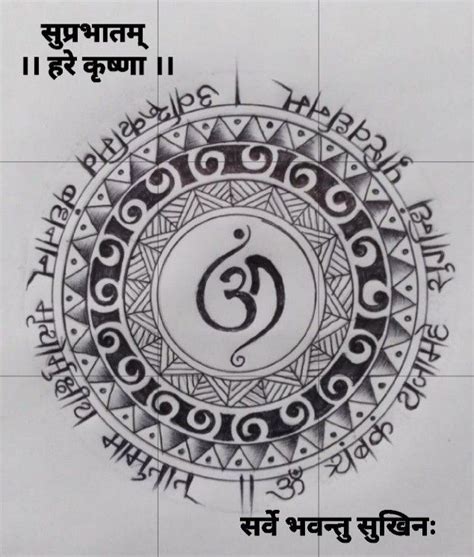 सुप्रभातम्
।। हरे कृष्णा ।।
ॐ
ॐ त्र्यंबकं यजामहे
पुष्टिवर्धनम् |
उर्वारुकमिव बन्धनान्
मृत्योर्मुक्षीय मामृतात् ||
सर्वे भवन्तु सुखिनः